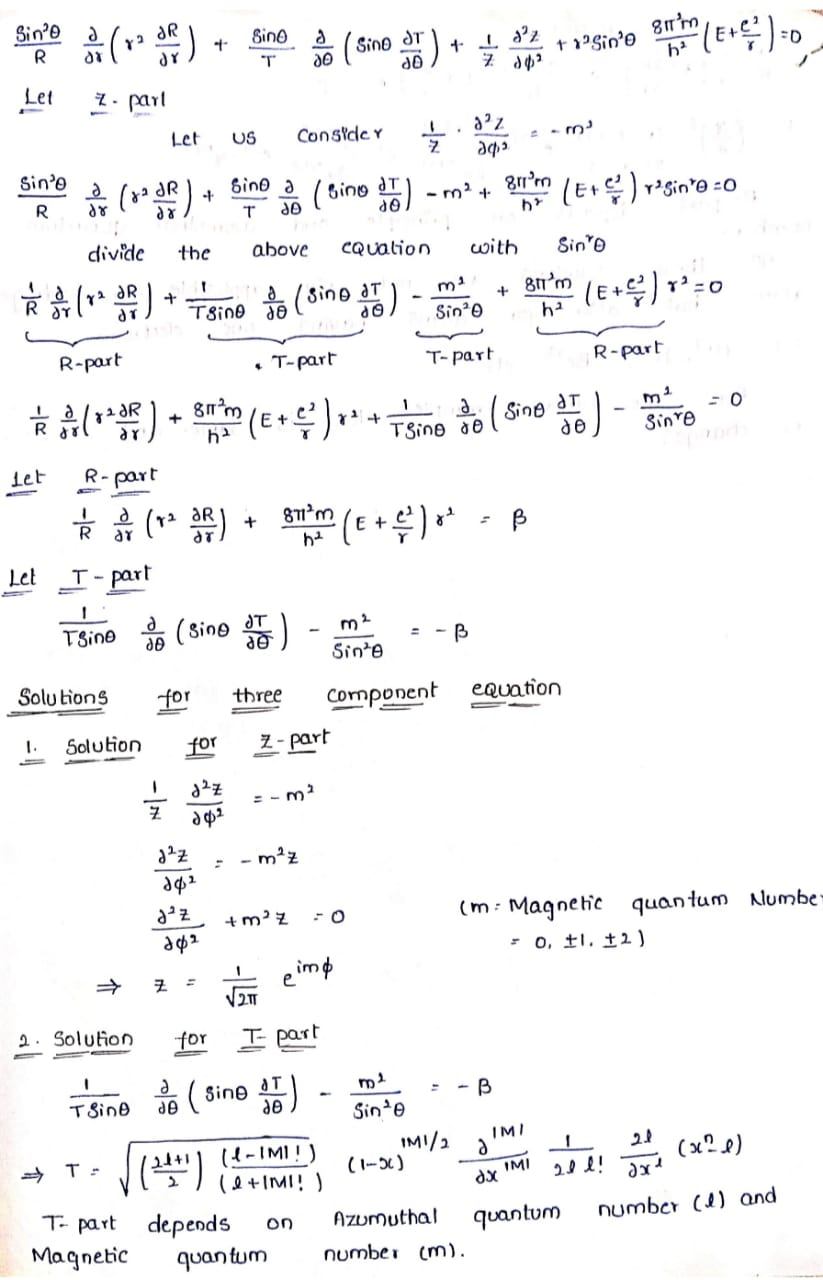 Sin²θ/R ∂/∂r (r² ∂R/∂r) + Sinθ/T ∂/∂θ (Sinθ ∂T/∂θ) + 1/Z ∂²Z/∂φ² + r²Sin²θ 8π²m/h² (E+e²/r) =0
Let Z-part
Let us Consider 1/Z · ∂²Z/∂φ² = -m²
Sin²θ/R ∂/∂r (r² ∂R/∂r) + Sinθ/T ∂/∂θ (Sinθ ∂T/∂θ) - m² + 8π²m/h² (E+e²/r) r²Sin²θ =0
divide the above equation with Sin²θ
1/R ∂/∂r (r² ∂R/∂r) + 1/TSinθ ∂/∂θ (Sinθ ∂T/∂θ) - m²/Sin²θ + 8π²m/h² (E+e²/r) r² =0
R-part T-part T-part R-part
1/R ∂/∂r (r² ∂R/∂r) + 8π²m/h² (E+e²/r) r² + 1/TSinθ ∂/∂θ (Sinθ ∂T/∂θ) - m²/Sin²θ = 0
Let R-part
1/R ∂/∂r (r² ∂R/∂r) + 8π²m/h² (E+e²/r) r² = β
Let T-part
1/TSinθ ∂/∂θ (Sinθ ∂T/∂θ) - m²/Sin²θ = -β
Solutions for three component equation
1. Solution for Z-part
1/Z ∂²Z/∂φ² = -m²
∂²Z/∂φ² = -m²Z
∂²Z/∂φ² +m²Z =0 (m: Magnetic quantum Numbe
⇒ Z = 1/√2π e^imφ = 0, ±1, ±2)
2. Solution for T-part
1/TSinθ ∂/∂θ (Sinθ ∂T/∂θ) - m²/Sin²θ = -β
⇒ T = √((2l+1)/2) (l-|M|!)/(l+|M|!) (1-x)^|M|/2 ∂^|M|/∂x^|M| 1/2l l! 2l/∂x^l
T-part depends on Azumuthal quantum number (l) and
Magnetic quantum number (m).